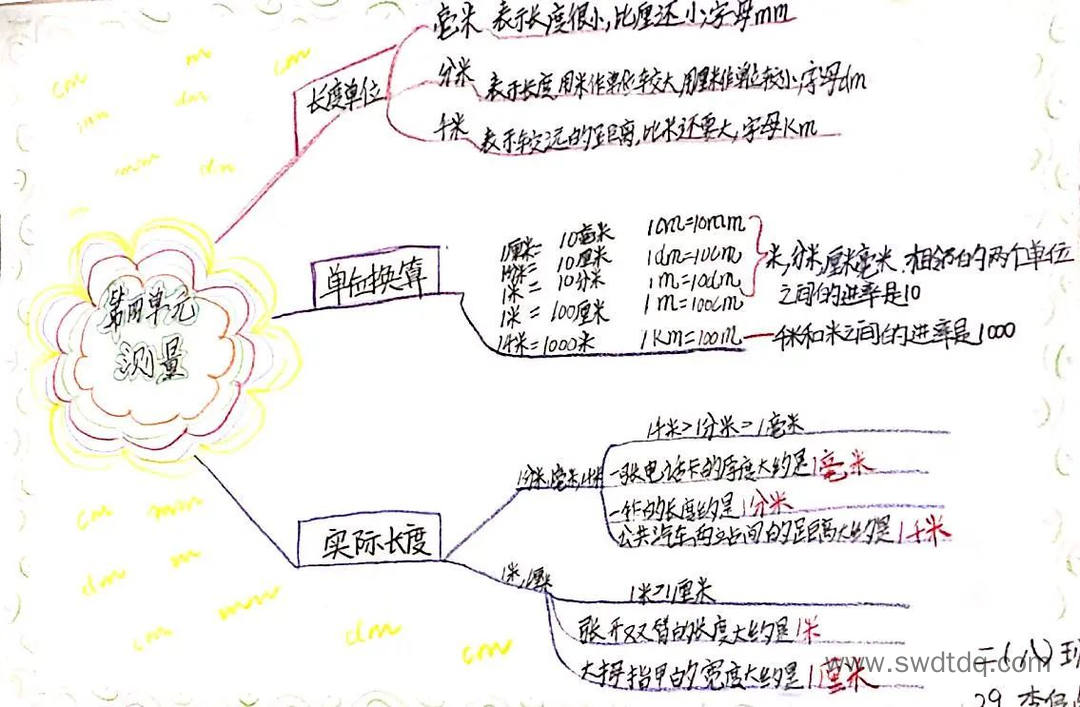 第四单元
测量
长度单位
毫米 表示长度很小,比厘还小,字母mm
分米 表示长度,用米作单位较大,用厘米作单位较小,字母dm
千米 表示较远的距离,比米还要大,字母Km
单位换算
1厘米= 10毫米 1cm=10mm
1分米= 10厘米 1dm=10cm
1米= 10分米 1m=10dm
1米= 100厘米 1m=100cm
1千米=1000米 1Km=100m
米,分米,厘米毫米,相邻的两个单位
之间的进率是10
千米和米之间的进率是1000
实际长度
1分米,1毫米,1千米
1千米>1分米>1毫米
一张电话卡的厚度大约是1毫米
的长度约是1分米
公共汽车两站间的距离大约是1千米
1米,1厘米
1米>1厘米
张开双臂的长度大约是1米
大拇指甲的宽度大约是1厘米
cm
m
cm
mm
dm
mm
dm
cm
mm
dm
m
mm
cm
dm
cm
www.swdtdq.com
二(八)班
29